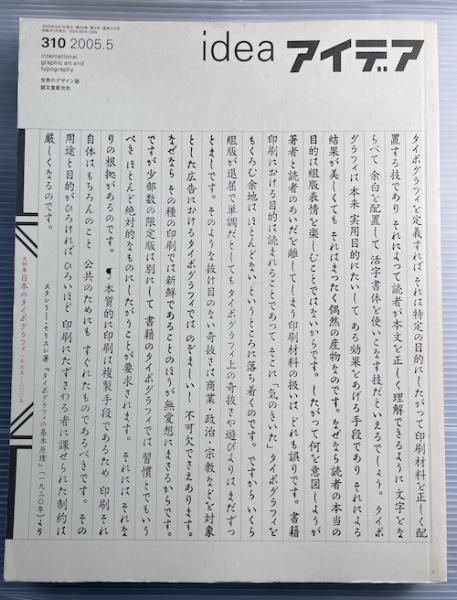 310 2005.5
international
graphic art and
typography
世界のデザイン誌
誠文堂新光社
idea アイデア
タイポグラフィを定義すれば それは特定の目的にしたがって印刷材料を正しく配
置する技であり それによって読者が本文を正しく理解できるように 文字をな
らべて 余白を配置して 活字書体を使いこなす技だといえるでしょう。タイポ
グラフィは本来 実用目的にたいして ある効果をあげる手段であり それによる
結果が美しくても それはまったく偶然の産物なのです。なぜなら読者の本当の
目的は組版表情を楽しむことではないからです。したがって何を意図しようが
著者と読者のあいだを離してしまう印刷材料の扱いは どれも誤りです。書籍
印刷における目的は読まれることであって そこに「気のきいた」タイポグラフィを
もくろむ余地は ほとんどない というところに落ち着くのです。ですから いくら
組版が退屈で単調だとしても タイポグラフィ上の奇抜さや遊びよりは まだずっ
とましです。そのような抜け目のない奇抜さは 商業 政治 宗教などを対象
とした広告におけるタイポグラフィでは のぞましいし 不可欠でさえあります。
なぜなら その種の印刷では新鮮であることのほうが 無愛想にまさるからです。
ですが少部数の限定版は別にして 書籍のタイポグラフィでは 習慣とでもいう
べき ほとんど絶対的なものにしたがうことが要求されます。それには それな
りの根拠があるのです。¶ 本質的に印刷は複製手段であるため 印刷それ
自体はもちろんのこと 公共のためにも すぐれたものであるべきです。その
用途と目的がひろければ ひろいほど 印刷にたずさわる者に課せられた制約は
厳しくなるのです。
スタンリー・モリスン著『タイポグラフィの基本原理』(一九三〇年)より
大特集 日本のタイポグラフィ 一九九五—二〇〇五